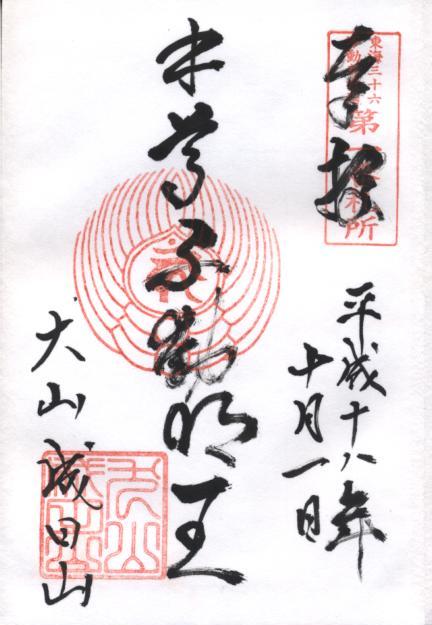 奉拝
東海三十六
不動尊
第一番札所
平成十八年
十月一日
本尊不動明王
犬山成田山